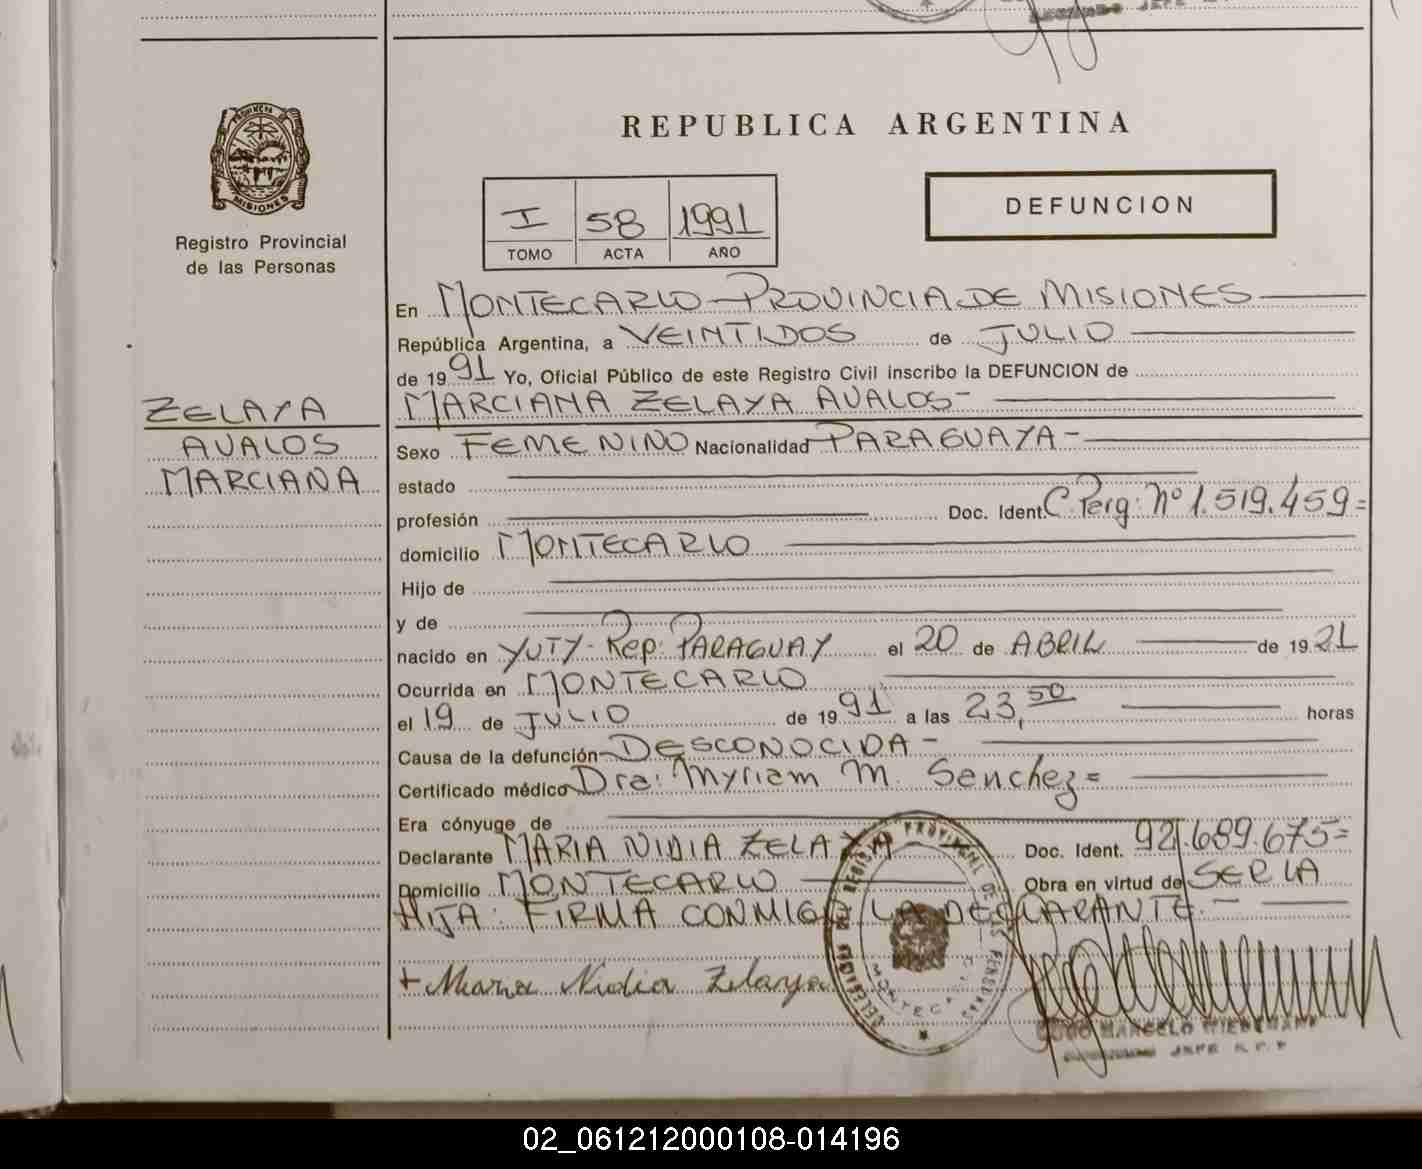 REPUBLICA ARGENTINA
PROVINCIA
MISIONES
Registro Provincial
de las Personas
I 58 1991
TOMO ACTA AÑO
DEFUNCION
En MONTECARLO - PROVINCIA DE MISIONES
República Argentina, a VEINTIDOS de JULIO
de 1991 Yo, Oficial Público de este Registro Civil inscribo la DEFUNCION de
MARCIANA ZELAYA AVALOS-
ZELAYA
AVALOS
MARCIANA
Sexo FEMENINO Nacionalidad PARAGUAYA-
estado
profesión Doc. Ident. C. Parg: Nº 1.519.459=
domicilio MONTECARLO
Hijo de
y de
nacido en YUTY- Rep: PARAGUAY el 20 de ABRIL de 1921
Ocurrida en MONTECARLO
el 19 de JULIO de 1991 a las 23,50 horas
Causa de la defunción DESCONOCIDA-
Certificado médico Dra: Myriam M. Sanchez=
Era cónyuge de
Declarante MARIA NIDIA ZELAYA Doc. Ident. 92.689.675=
Domicilio MONTECARLO Obra en virtud de SER LA
HIJA: FIRMA CONMIGO LA DECLARANTE.-
+ Maria Nidia Zelaya
DELEGACION DEL REGISTRO PROVINCIAL DE LAS PERSONAS
MONTECARLO
MARCELO
JEFE
02_061212000108-014196